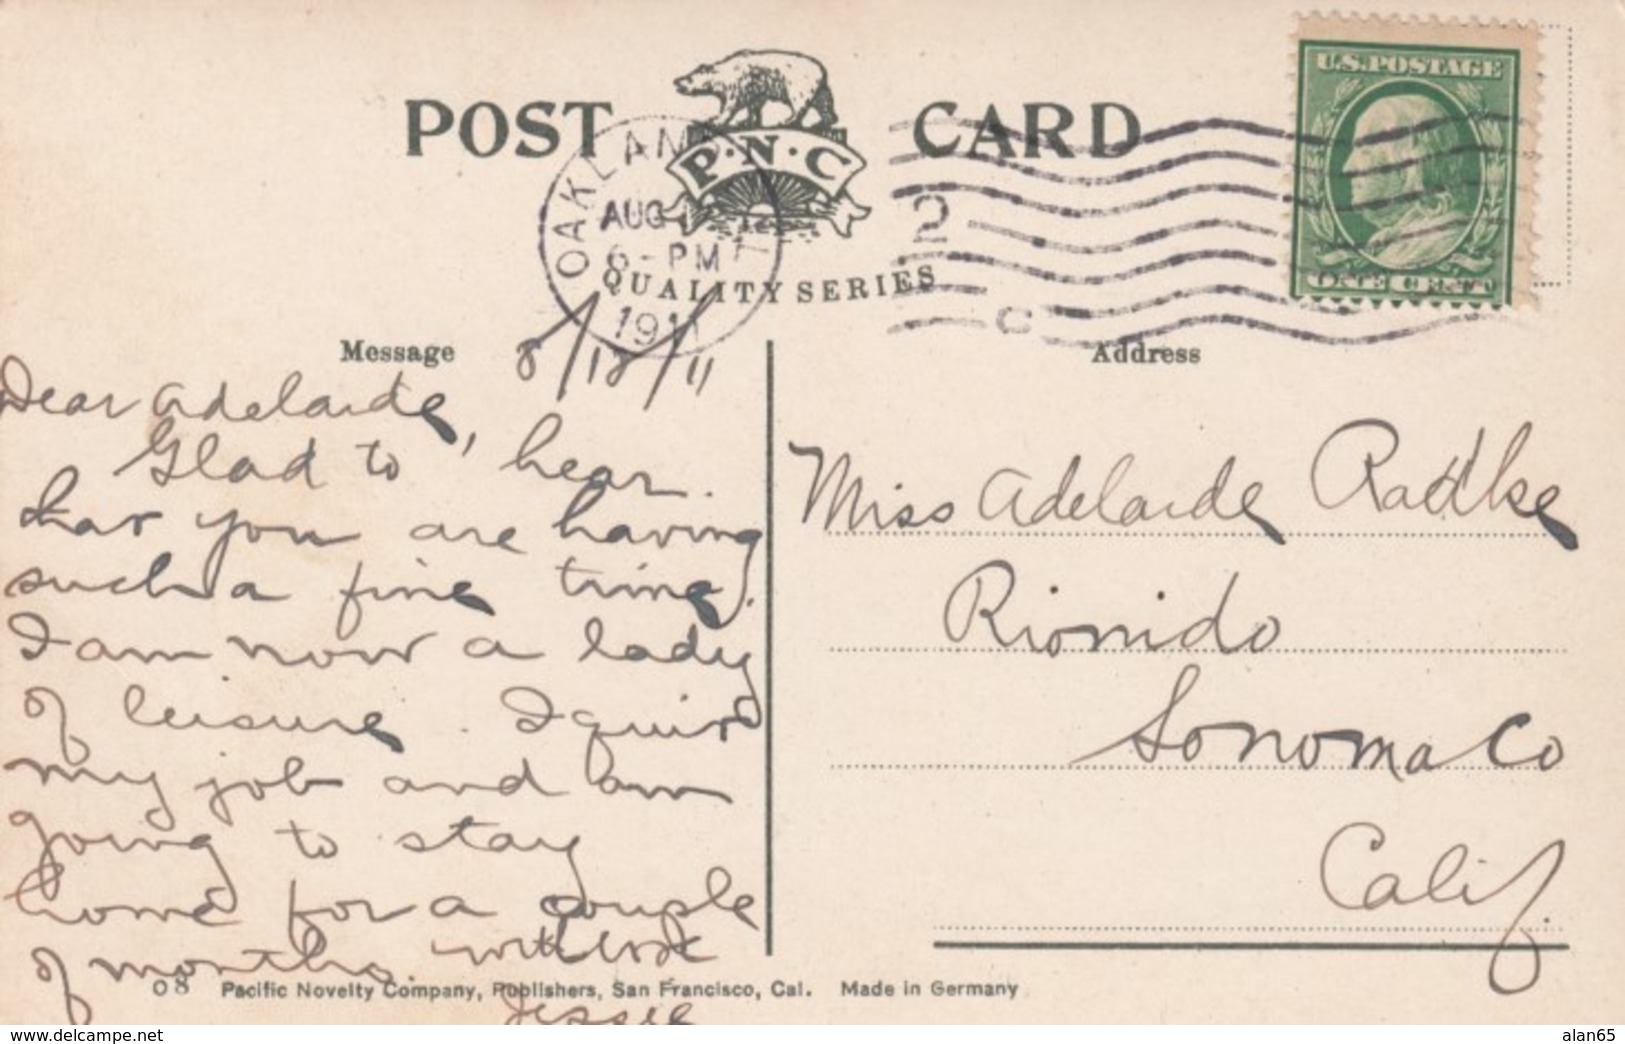 POST CARD
P·N·C
QUALITY SERIES
OAKLAND
AUG 1
6-PM
1911
2
C
U.S. POSTAGE
ONE CENT
Message
Address
8/18/11
Dear Adelaide,
Glad to hear
that you are having
such a fine time.
I am now a lady
of leisure. I quired
my job and am
going to stay
home for a couple
of months. with love
Jessie
Miss Adelaide Radtke
Rionido
Sonoma Co
Calif.
08 Pacific Novelty Company, Publishers, San Francisco, Cal. Made in Germany
www.delcampe.net
alan65